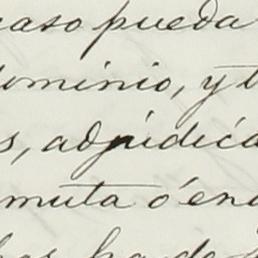 caso pueda
dominio, y t
s, adjudica
muta ó ena